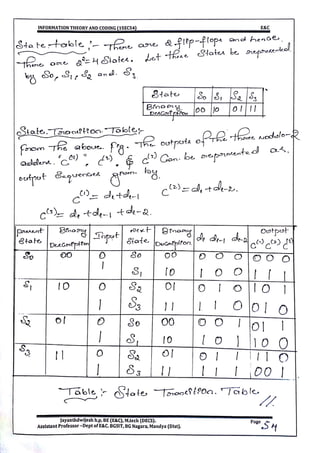 INFORMATION THEORY AND CODING (15EC54) E&C
State table :- There are 2 flip-flops and hence
There are 2² = 4 states. Let these states be represented
by S0, S1, S2 and S3
State S0 S1 S2 S3
Binary Description 00 10 01 11
State Transition Table:-
From the above fig. The outputs of the three modulo-2
adders. C(1), C(2) & C(3) can be represented as.
output sequences given by.
C(1) = dt + dt-1 C(2) = dt + dt-2.
C(3) = dt + dt-1 + dt-2.
Present State Binary Description Input Next State Binary Description dt dt-1 dt-2 Output C(1) C(2) C(3)
S0 00 0 S0 00 0 0 0 0 0 0
1 S1 10 1 0 0 1 1 1
S1 10 0 S2 01 0 1 0 1 0 1
1 S3 11 1 1 0 0 1 0
S2 01 0 S0 00 0 0 1 0 1 1
1 S1 10 1 0 1 1 0 0
S3 11 0 S2 01 0 1 1 1 1 0
1 S3 11 1 1 1 0 0 1
Table :- State Transition Table
Jayanthdwijesh h.p, BE (E&C), M.tech (DECS).
Assistant Professor –Dept of E&C, BGSIT, BG Nagara, Mandya (Dist). Page 54